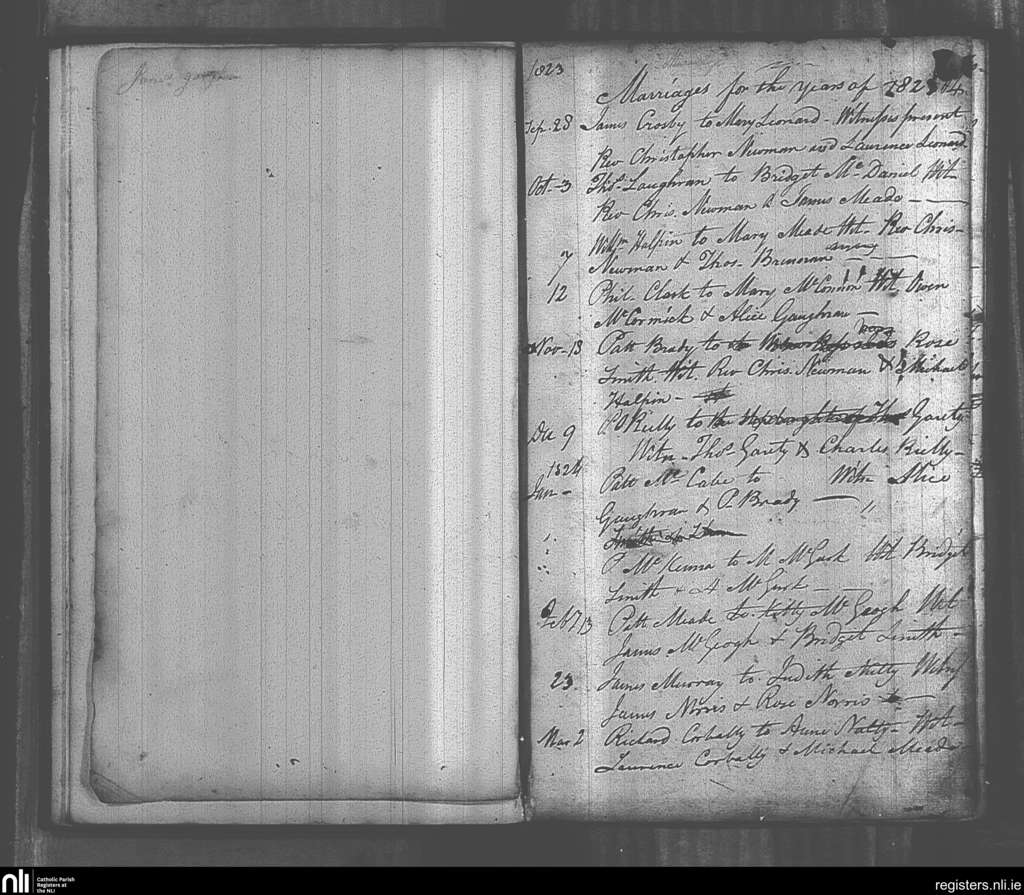 James
1823
Marriages for the Years of 1823
Sep. 28 James Crosby to Mary Leonard - Witnesses present
Rev Christopher Newman and Laurence Leonard
Oct - 3 Thos. Laughran to Bridget Mc Daniel Wit-
Rev Chris. Newman & James Meade -
Willm Halpin to Mary Meade Wit- Rev Chris-
7 Newman & Thos- Brennan
12 Phil- Clark to Mary McConnon Wit. Owen
McCormick & Alice Gaughran -
Nov- 13 Patt Brady to Rose
Smith Wit. Rev Chris. Newman & Michael
Halpin -
Dec 9 P. O Reilly to the Garety
Witn - Thos Garety & Charles Reilly -
1824
Jan - Patt Mc Cabe to Witn Alice
Gaughran & P. Brady - "
P. McKenna to M McGurk Wit Bridget
Smith & A McGurk
Feb 13 Patt Meade to Kitty McGeogh Wit
James McGeogh & Bridget Smith -
23. James Murray to Judith Witns
James Norris & Rose Norris -
Mar 2 Richard Corbally to Anne Wit-
Laurence Corbally & Michael Meade
nli Catholic Parish
Registers at
the NLI
registers.nli.ie